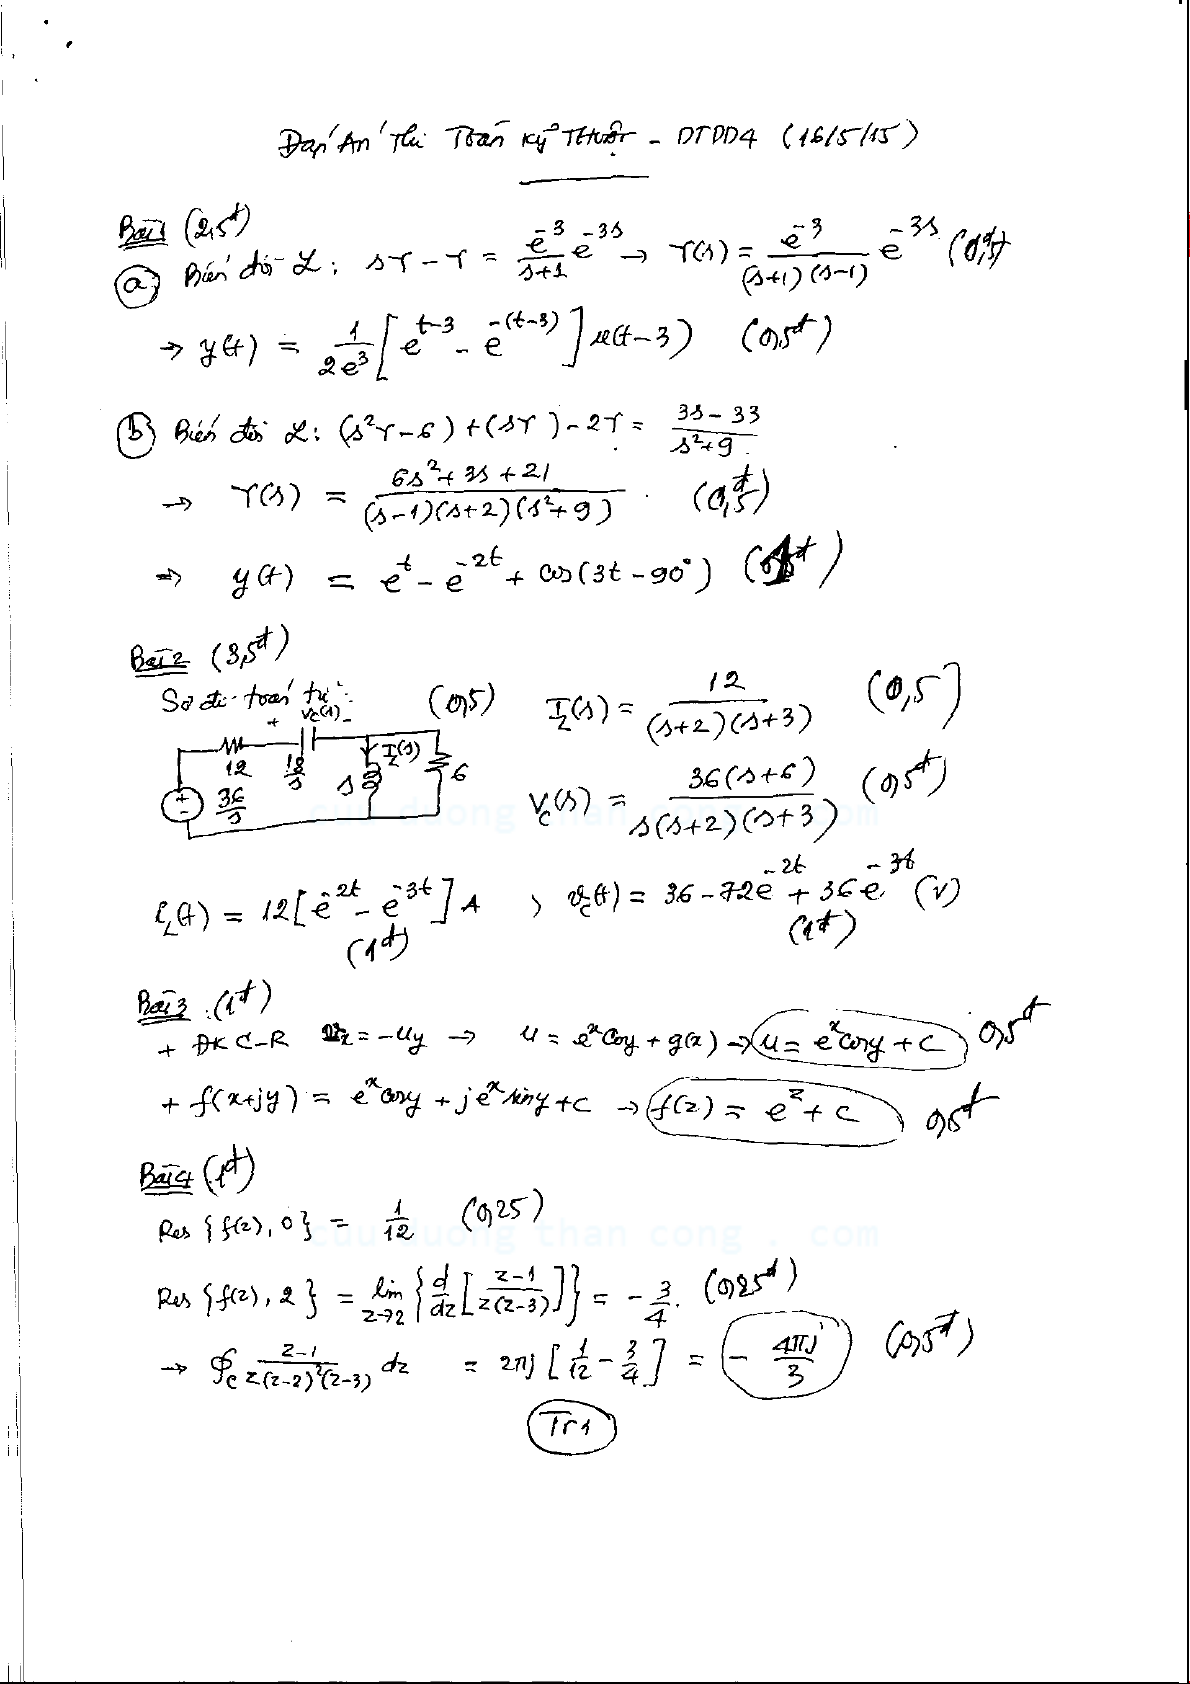 Đáp Án Thi Toán Kỹ Thuật - DTDD4 (16/5/15)
Bài 1 (2,5đ)
(a) Biến đổi L: sY - Y = e^{-3}/(s+1) e^{-3s} → Y(s) = e^{-3}/((s+1)(s-1)) e^{-3s} (0,5đ)
→ y(t) = 1/(2e^3) [e^{t-3} - e^{-(t-3)}] u(t-3) (0,5đ)
(b) Biến đổi L: (s²Y-6)+(sY)-2Y = (3s-33)/(s²+9)
→ Y(s) = (6s²+3s+21)/((s-1)(s+2)(s²+9)) (0,5đ)
⇒ y(t) = e^t - e^{-2t} + cos(3t-90°) (1đ)
Bài 2 (3,5đ)
Sơ đồ toán tử: (0,5) I_L(s) = 12/((s+2)(s+3)) (0,5)
+ V_C(s) -
12 18/s s I_L(s) 6
+ - 36/s
V_C(s) = 36(s+6)/(s(s+2)(s+3)) (0,5đ)
cuu duong than cong . com
i_L(t) = 12[e^{-2t} - e^{-3t}] A ; v_C(t) = 36-72e^{-2t} + 36e^{-3t} (V)
(1đ) (1đ)
Bài 3 (1đ)
+ ĐK C-R v_x = -u_y → u = e^x cosy + g(x) → u = e^x cosy + C 0,5đ
+ f(x+jy) = e^x cosy + je^x siny + C → f(z) = e^z + C 0,5đ
Bài 4 (1đ)
Res {f(z), 0} = 1/12 (0,25)
cuu duong than cong . com
Res {f(z), 2} = lim_{z→2} {d/dz [(z-1)/(z(z-3))]} = -3/4. (0,25đ)
→ ∮_C (z-1)/(z(z-2)²(z-3)) dz = 2πj [1/12 - 3/4] = -4πj/3 (0,5đ)
Tr1